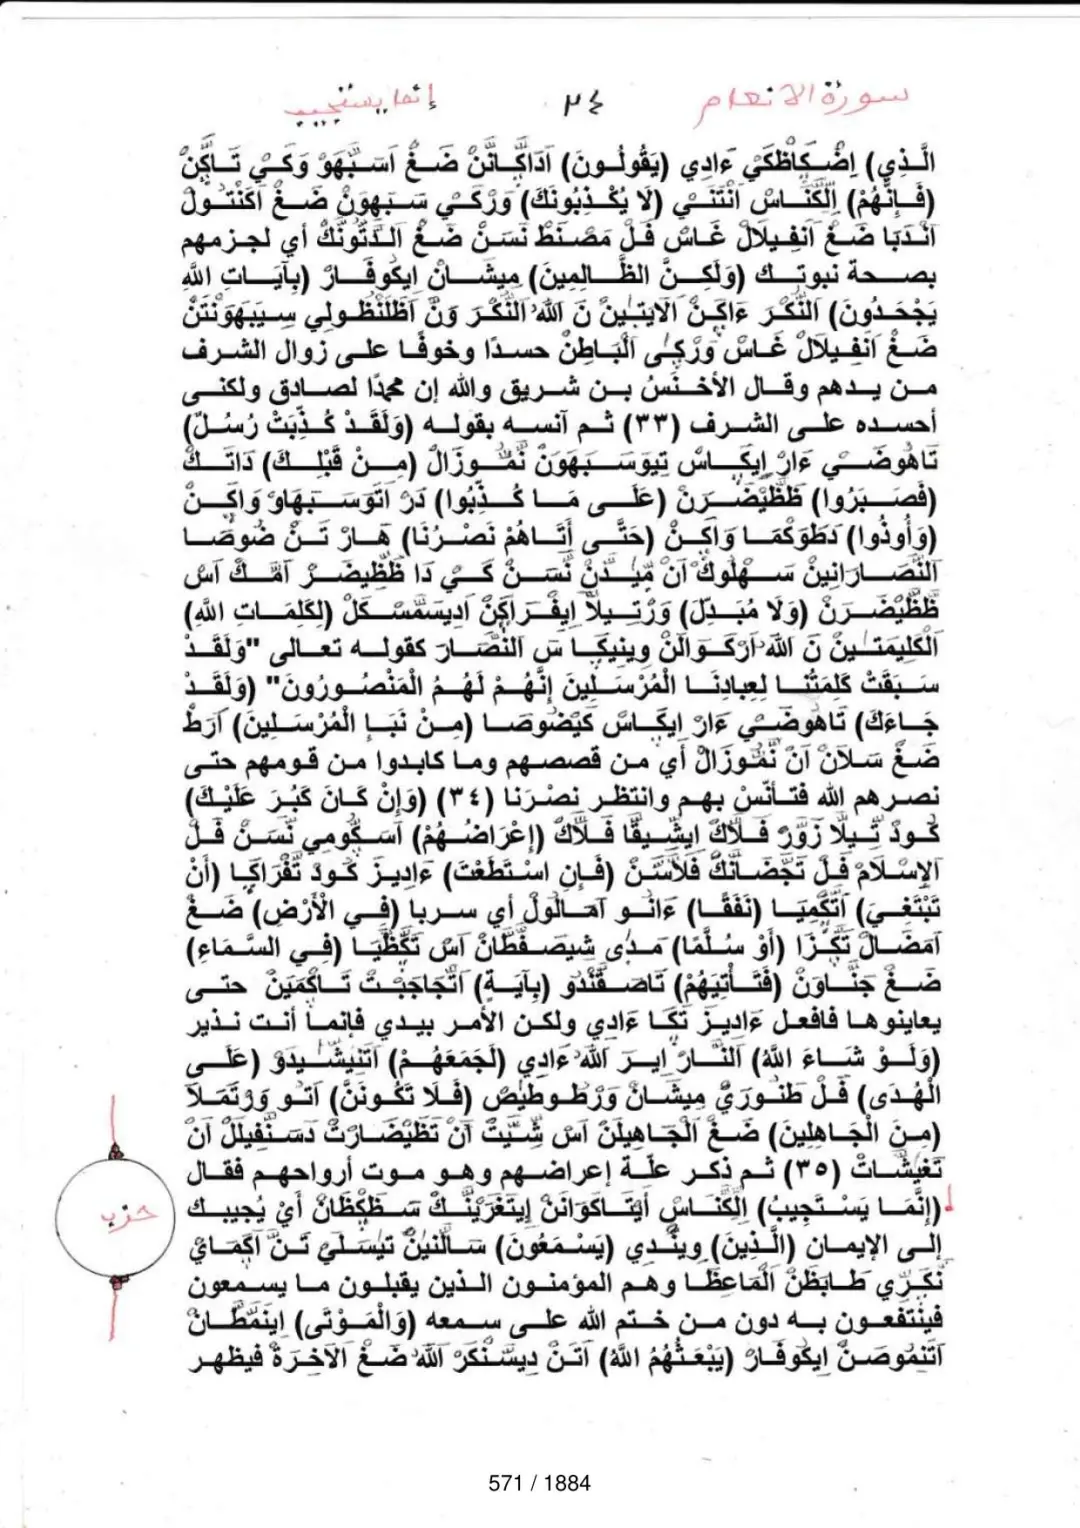 سورة الانعام ٢٤ إنما يستجيب
الَّذِي) إِضْكَاظْكَيْ ءَادِي (يَقُولُونَ) اَدَاكَّانَّنْ ضَغْ اَسَبَّهَوْ وَكَيْ تَاكَّنْ
(فَإِنَّهُمْ) اِلْكَّنَاسْ اَنْتَنَيْ (لَا يُكْذِبُونَكَ) وَرْكَيْ سَبِهَوْنْ ضَغْ اَكَنْتُولْ
اَنْدَبَا ضَغْ اَنْفِيلَالْ غَاسْ فَلْ مَصْنَطْ نَسَنْ ضَغْ اَلدَّتُونَكْ أي لجزمهم
بصحة نبوتك (وَلَكِنَّ الظَّالِمِينَ) مِيشَانْ اِيكُوفَارْ (بِآيَاتِ اللَّهِ
يَجْحَدُونَ) اَلنَّكَرْ ءَاكَنْ اَلَايَتَيِنْ نَ اَللَّه اَلنَّكَرْ وَنْ اَظَّلَنْظُولِي سِيَبَهَوْنْتَنْ
ضَغْ اَنْفِيلَالْ غَاسْ وَرْكَى اَلْبَاطِنْ حسدًا وخوفًا على زوال الشرف
من يدهم وقال الأخنَسُ بن شريق والله إن محمدًا لصادق ولكنى
أحسده على الشرف (٣٣) ثم آنسه بقوله (وَلَقَدْ كُذِّبَتْ رُسُلٌ)
تَاهُوضَيْ ءَارْ اِيكَاسْ تِيوَسَبَهَوَنْ نَّمُوزَالْ (مِنْ قَبْلِكَ) دَاتَكْ
(فَصَبَرُوا) ظَظَيْضَرَنْ (عَلَى مَا كُذِّبُوا) دَرْ اَتَوَسَبَهَاوْ وَاكَنْ
(وَأُوذُوا) دَطَوَكَمَا وَاكَنْ (حَتَّى أَتَاهُمْ نَصْرُنَا) هَارْ تَنْ ضُوصَا
اَلنَّصَارَانِينْ سَهْلُوكْ اَنْ مِّيْدَنْ نَسَنْ كَيْ دَا ظَظِيضَرْ اَمَّكْ اَسْ
ظَظَيْضَرَنْ (وَلَا مُبَدِّلَ) وَرْتِيلَا اِيفَرَاكَنْ اَدِيسَمَّسْكَلْ (لِكَلِمَاتِ اللَّهِ)
اَلْكَلِيمَتَيِنْ نَ اَللَّه اَرْكَوَالَنْ وِينِيكَا سَ اَلنَّصَارَ كقوله تعالى "وَلَقَدْ
سَبَقَتْ كَلِمَتُنَا لِعِبَادِنَا الْمُرْسَلِينَ إِنَّهُمْ لَهُمُ الْمَنْصُورُونَ" (وَلَقَدْ
جَاءَكَ) تَاهُوضَيْ ءَارْ اِيكَاسْ كَيْضُوصَا (مِنْ نَبَإِ الْمُرْسَلِينَ) اَرَطْ
ضَغْ سَلَانْ اَنْ نَّمُوزَالْ أي من قصصهم وما كابدوا من قومهم حتى
نصرهم الله فتأنّس بهم وانتظر نصْرَنا (٣٤) (وَإِنْ كَانَ كَبُرَ عَلَيْكَ)
كُودْ تِيلَا زَوَّرْ فَلَاكْ اِيشِيقَّا فَلَاكْ (إِعْرَاضُهُمْ) اَسَكُومِي نَسَنْ فَلْ
اَلِاسْلَامْ فَلْ تَجْضَانَكْ فَلَاسَنْ (فَإِنِ اسْتَطَعْتَ) ءَادِيزْ كُودْ تَفْرَاكَا (أَنْ
تَبْتَغِيَ) اَتَّكْمِيَا (نَفَقًا) ءَانُو اَهَالُولْ أي سربا (فِي الْأَرْضِ) ضَغْ
اَمْضَالْ تَكَّزَا (أَوْ سُلَّمًا) مَدَى شِيصَفْطَانْ اَسْ تَكَظَّيَا (فِي السَّمَاءِ)
ضَغْ جَنَّاوَنْ (فَتَأْتِيَهُمْ) تَاضَفَّنْدُو (بِآيَةٍ) اَتَّجَاجَبْتْ تَاكَمَيَنْ حتى
يعاينوها فافعل ءَادِيزْ تَكَا ءَادِي ولكن الأمر بيدي فإنما أنت نذير
(وَلَوْ شَاءَ اللَّهُ) اَلنَّارْ اِيرَ اَللَّه ءَادِي (لَجَمَعَهُمْ) اَتَنِيشِّيدَوْ (عَلَى
الْهُدَى) فَلْ طَنُورِيْ مِيشَانْ وَرْطُوطِيْصْ (فَلَا تَكُونَنَّ) اَتَو وَرْتَمَلَا
(مِنَ الْجَاهِلِينَ) ضَغْ اَلْجَاهِيلَنْ اَسْ شِّيَتْ اَنْ تَظَيْضَارَتْ دَسَنْفِيلَلْ اَنْ
تَغَيشَّاتْ (٣٥) ثم ذكر علّة إعراضهم وهو موت أرواحهم فقال
(إِنَّمَا يَسْتَجِيبُ) اِلْكَّنَاسْ اَيْتَاكَوَانَنْ اِيتَغَرَيْنَكْ سَظَكْظَانْ أيْ يُجيبك
إلى الإيمان (الَّذِينَ) وِينْدِي (يَسْمَعُونَ) سَالَّنَيْنْ تَيْسَلَيْ تَنْ اَكَمَايْ
نَكَرِّي طَابَظَنْ اَلْمَاعِظَا وهم المؤمنون الذين يقبلون ما يسمعون
فينْتفعون به دون من ختم الله على سمعه (وَالْمَوْتَى) اِينَمَّطَانْ
اَتَنْمُوصَنْ اِيكُوفَارْ (يَبْعَثُهُمُ اللَّهُ) اَتَنْ دِيسَنْكَرْ اَللَّه ضَغْ اَلَاخِرَةْ فيظهر
حزب
571 / 1884